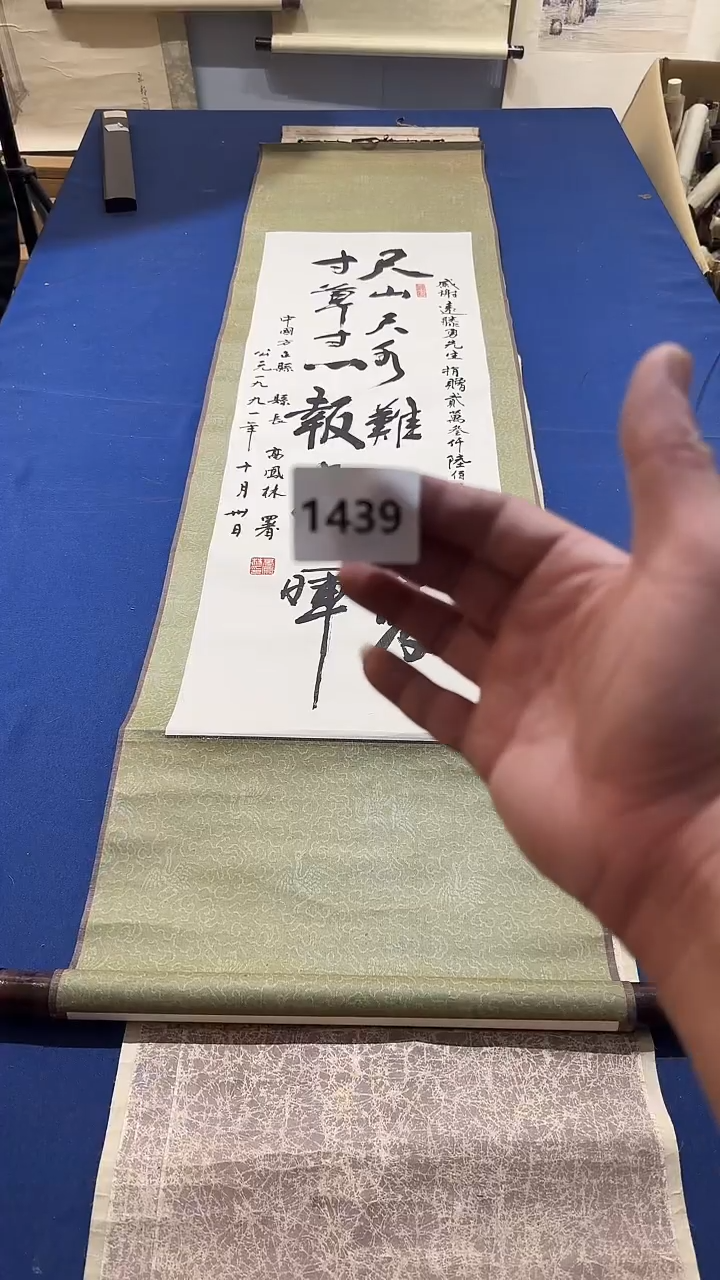 感謝遠藤勇先生 捐贈貳萬叁仟陸佰
尺山尺水難
寸草寸心報 暉
中國方正縣 縣長 高鳳林 署
公元一九九一年十月卅日
1439